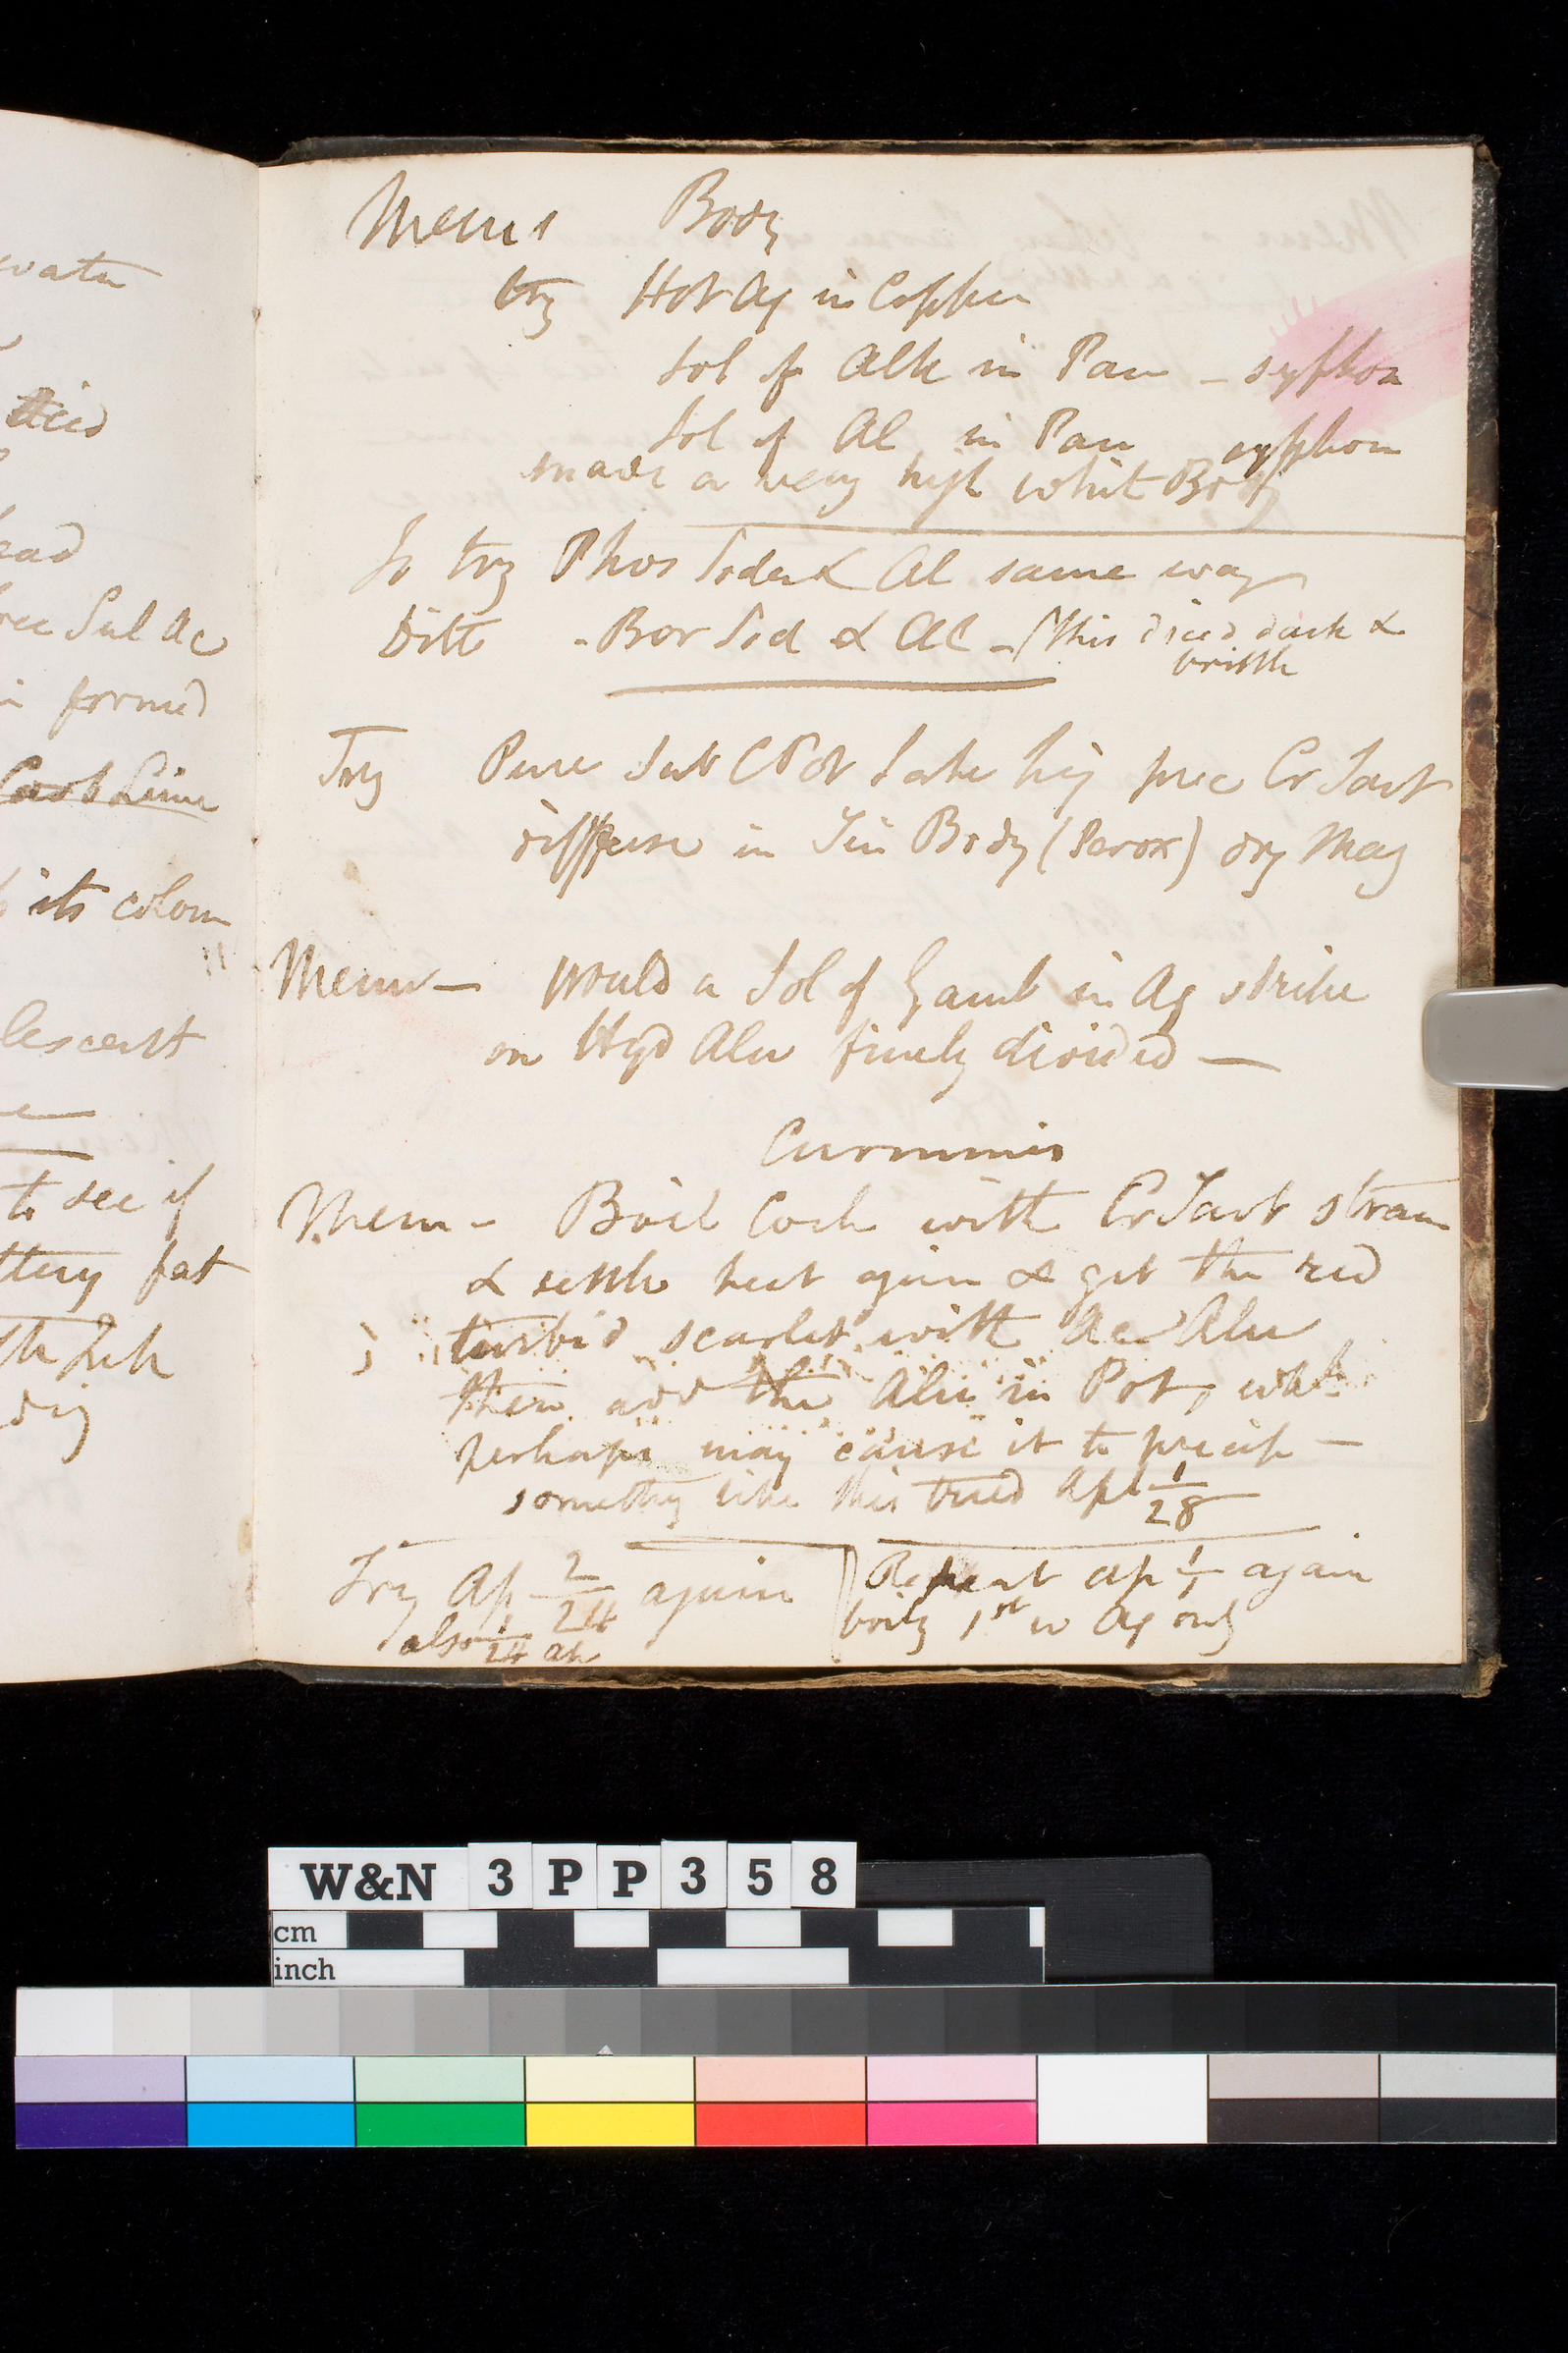 water
Acid
ead
ree Sul Ac
formed
Carb Lime
its colour
lescent
to see if
ttery fat
Mems Body
try Hot Aq in Copper
Sol of Alk in Pan - syphon
Sol of Al in Pan syphon
made a very high whit Body
So try Phos Soda & Al same way
Ditto - Bor Sod & Al - (This dried dark &
brittle
Try Pure Sub C Pot Lake liq prec Cr Tart
diffuse in Tin Body (Perox) dry Mag
Mem - would a Sol of Gamb in Aq strike
on Hyd Alu finely divided -
Carmine
Mem - Boil Coch with Cr Tart strain
& settle heat again & get the red
turbid scarlet with Ac Alu
then add the Alu in Pot, wh
perhaps may cause it to precip -
something like this tried Ap 1/28
Try Ap 2/24 again
also 1/24 ah
Repeat Ap 1/1 again
boilg 1st in Aq only
W&N 3PP358
cm
inch